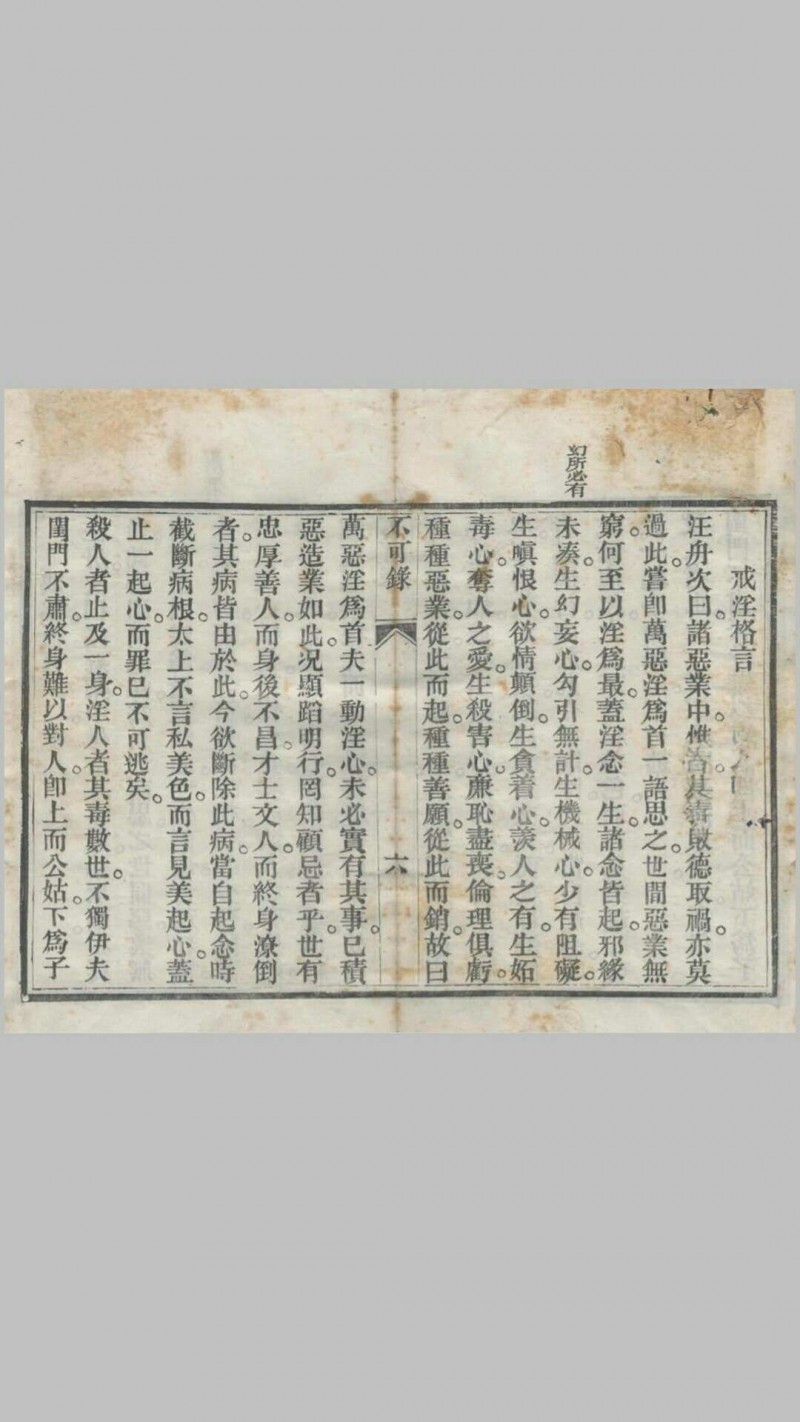 幻所必有
戒淫格言
汪舟次曰。諸惡業中。惟淫其毒敗德取禍。亦莫
過此。嘗卽萬惡淫爲首一語思之。世間惡業無
窮。何至以淫爲最。蓋淫念一生。諸念皆起。邪緣
未湊。生幻妄心。勾引無計。生機械心。少有阻礙。
生嗔恨心。欲情顚倒。生貪着心。羨人之有。生妬
毒心。奪人之愛。生殺害心。廉恥盡喪。倫理俱虧。
種種惡業。從此而起。種種善願。從此而銷。故曰
不可錄
六
萬惡淫爲首夫一動淫心。未必實有其事。已積
惡造業如此。况顯蹈明行。罔知顧忌者乎。世有
忠厚善人。而身後不昌。才士文人。而終身潦倒
者。其病皆由於此。今欲斷除此病。當自起念時
截斷病根。太上不言私美色。而言見美起心。蓋
止一起心。而罪已不可逃矣。
殺人者止及一身。淫人者其毒數世。不獨伊夫
閨門不肅。終身難以對人。卽上而公姑。下爲子